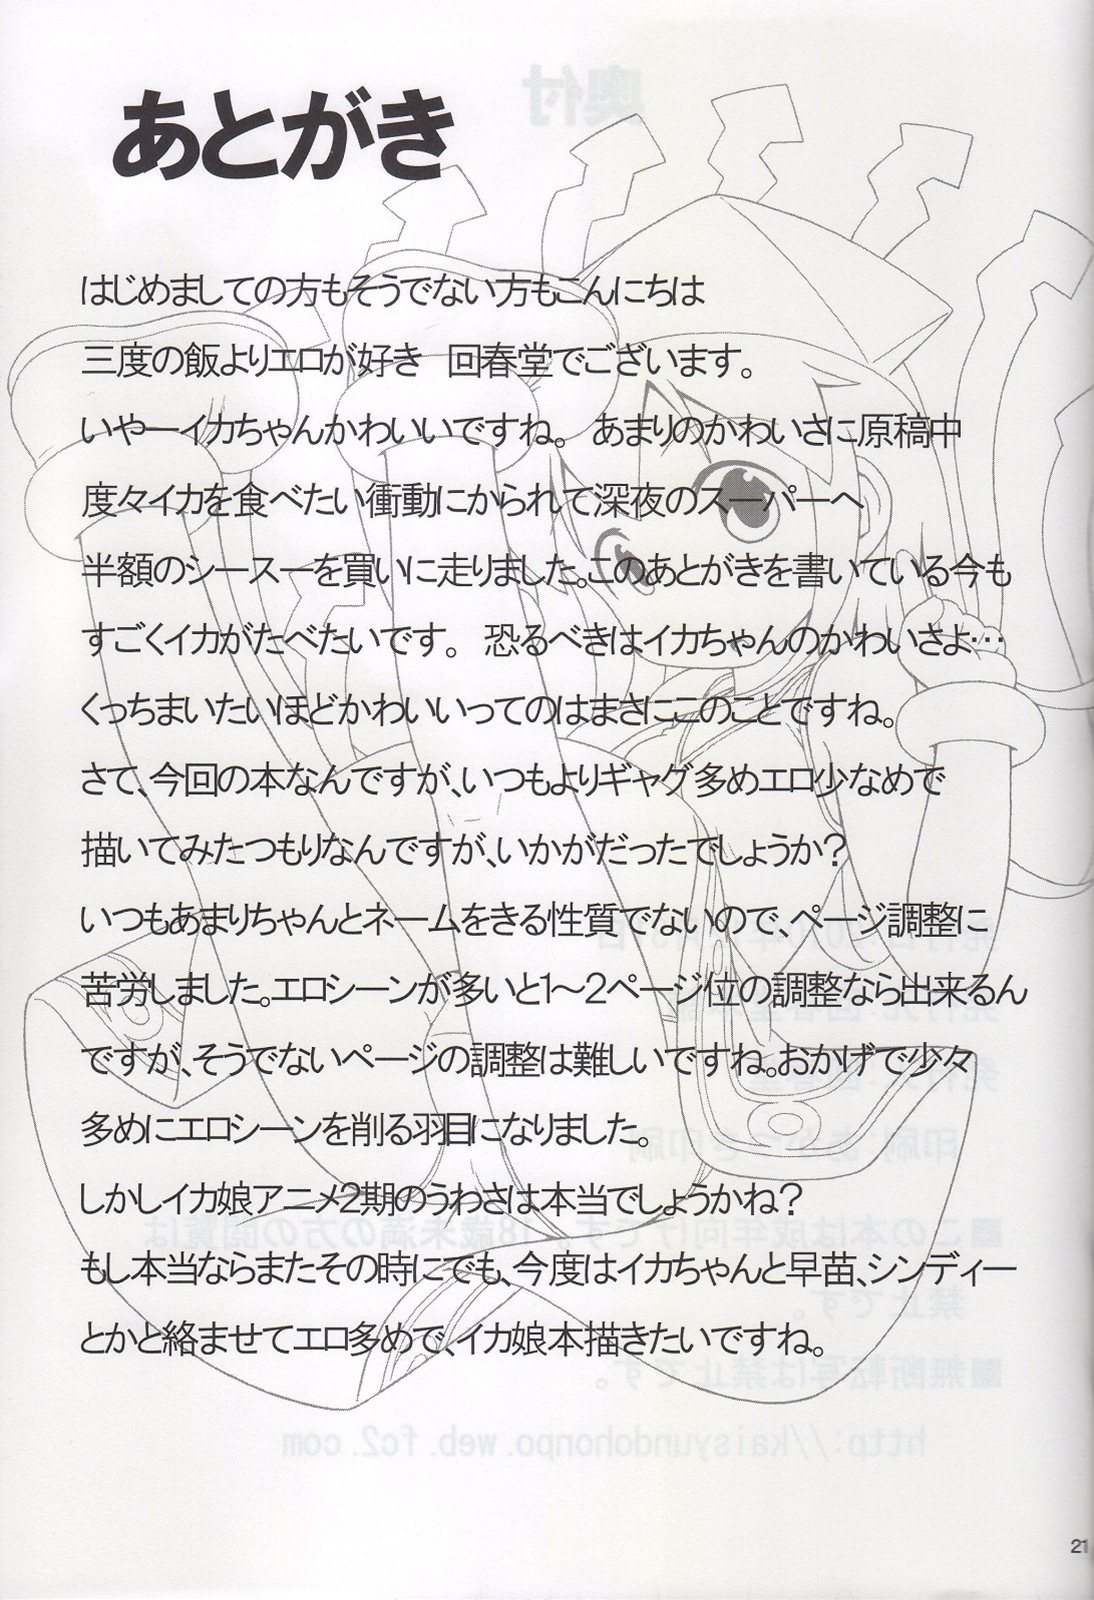 あとがき
はじめましての方もそうでない方もこんにちは
三度の飯よりエロが好き　回春堂でございます。
いやーイカちゃんかわいいですね。　あまりのかわいさに原稿中
度々イカを食べたい衝動にかられて深夜のスーパーへ
半額のシースーを買いに走りました。このあとがきを書いている今も
すごくイカがたべたいです。　恐るべきはイカちゃんのかわいさよ…
くっちまいたいほどかわいいってのはまさにこのことですね。
さて、今回の本なんですが、いつもよりギャグ多めエロ少なめで
描いてみたつもりなんですが、いかがだったでしょうか？
いつもあまりちゃんとネームをきる性質でないので、ページ調整に
苦労しました。エロシーンが多いと1～2ページ位の調整なら出来るん
ですが、そうでないページの調整は難しいですね。おかげで少々
多めにエロシーンを削る羽目になりました。
しかしイカ娘アニメ2期のうわさは本当でしょうかね？
もし本当ならまたその時にでも、今度はイカちゃんと早苗、シンディー
とかと絡ませてエロ多めで、イカ娘本描きたいですね。
奥付
■この本は成年向けです。18歳未満の方の閲覧は
禁止です。
■無断転写は禁止です。
http://kaisyundohonpo.web.fc2.com
21